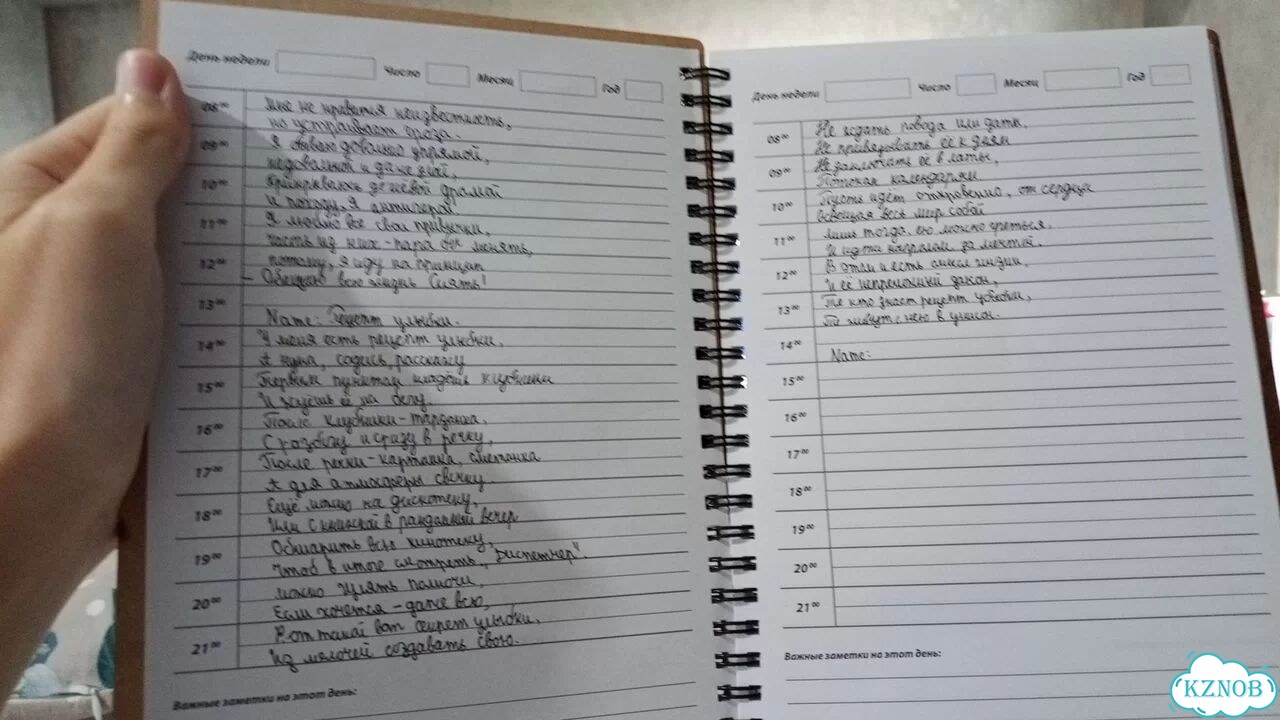 День недели Число Месяц Год
08⁰⁰ Мне не нравится неизвестность,
но устраивает проза.
09⁰⁰ Я бываю довольно упрямой,
недовольной и даже злой,
10⁰⁰ Прикрываюсь дешёвой драмой
И походу, я антигерой.
11⁰⁰ Я люблю все свои привычки,
Часть из них - пора бы менять,
12⁰⁰ потому, я иду на принцип
- Обещаю всю жизнь Сиять!
13⁰⁰
Name: Рецепт улыбки.
14⁰⁰ У меня есть рецепт улыбки,
А нука, садись, расскажу
15⁰⁰ Первым пунктом кладёшь клубники
И жуёшь её на бегу.
16⁰⁰ После клубники -
С разбегу и сразу в речку,
17⁰⁰ После речки - картошка, сметанка
А для атмосферы свечку.
18⁰⁰ Ещё можно на дискотеку,
Или с книжкой в рандомный вечер
19⁰⁰ Обшарить всю кинотеку,
Чтоб в итоге смотреть „Диспетчер".
20⁰⁰ можно гулять полночи,
Если хочется - даже всю,
21⁰⁰ Вот такой вот секрет улыбки,
Из мелочей создавать свою.
Важные заметки на этот день:
День недели Число Месяц Год
08⁰⁰ Не ждать повода или даты,
Не привязывать её к дням
09⁰⁰ Не заключать её в латы,
Потокая календарям
10⁰⁰ Пусть идёт откровенно, от сердца
Освещая весь мир собой
11⁰⁰ лишь тогда ею можно греться,
И идти напролом за мечтой.
12⁰⁰ В этом и есть смысл жизни,
И её непреложный закон,
13⁰⁰ Те кто знает рецепт улыбки,
Те живут с нею в унисон.
14⁰⁰
Name:
15⁰⁰
16⁰⁰
17⁰⁰
18⁰⁰
19⁰⁰
20⁰⁰
21⁰⁰
Важные заметки на этот день:
KZNOB